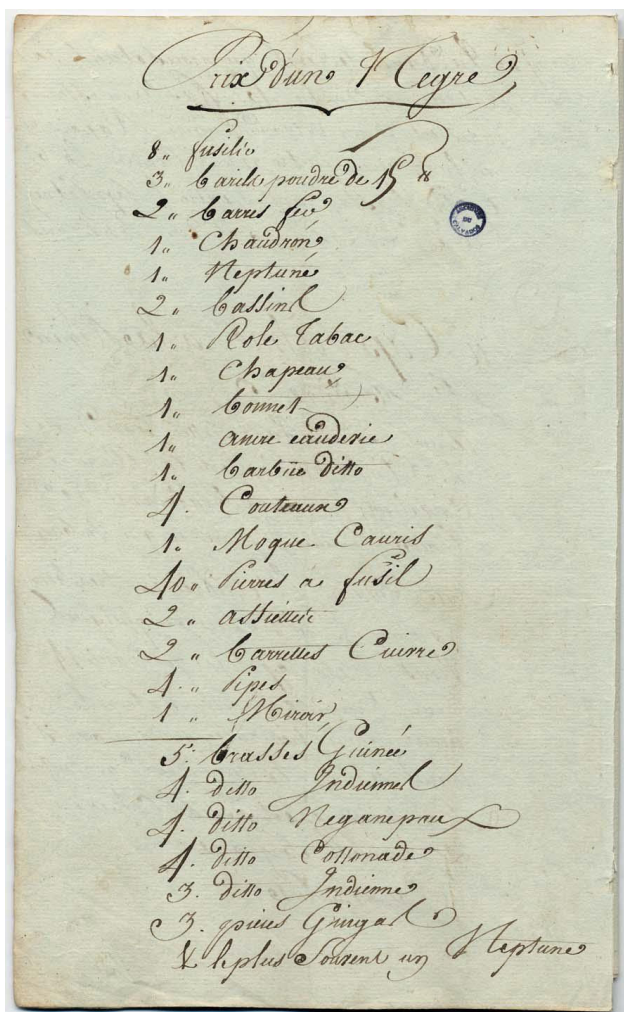 Prix d'un Negre
8„ fusilis
3„ barils poudre de 15 ℔
2„ barres fer
1„ Chaudron
1„ Neptune
2„ bassins
1„ Role Tabac
1„ Chapeau
1„ bonnet
1„ ancre eauderie
1„ barbue ditto
4. Couteaux
1„ Moque Cauris
40„ Pierres a fusil
2„ assiettes
2„ barrettes Cuivre
4.„ Pipes
1„ Miroir
5. brasses Guinée
4. ditto Indiennes
4. ditto Neganepaux
4. ditto Cottonade
3. ditto Indienne
3. pieces Gingas
& le plus Souvent un Neptune